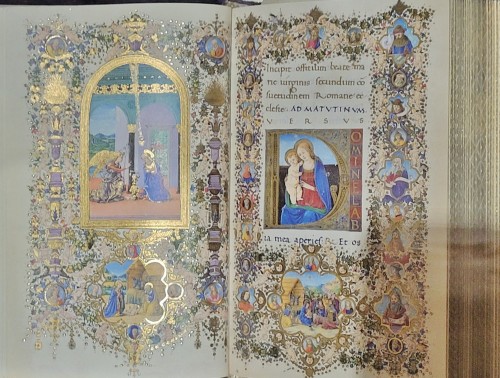 Incipit offitium beate ma
rie uirginis secundum cō
suetudinem Romane ec
clesie. AD MATUTINUM
VERSUS
DOMINE LAB
ia mea aperies. R. Et os